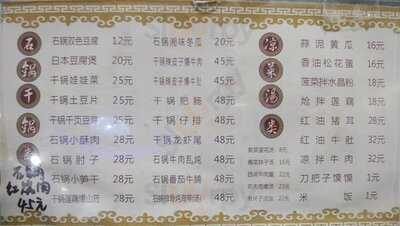 石锅干锅
石锅双色豆腐 12元
日本豆腐煲 20元
干锅娃娃菜 25元
干锅土豆片 25元
干锅千页豆腐 25元
石锅小酥肉 28元
石锅肘子 28元
石锅小笋干 28元
28元
石锅
红烧肉
45元
石锅湘味冬瓜 20元
干锅辣皮子爆牛肉 45元
干锅辣皮子爆牛肚 45元
干锅肥肠 48元
干锅仔排 48元
干锅龙虾尾 48元
石锅牛肉乱炖 48元
石锅番茄牛腩 48元
48元
凉菜汤类
蒜泥黄瓜 16元
香油松花蛋 16元
菠菜拌水晶粉 18元
炝拌莲藕 18元
红油猪耳 28元
红油牛肚 32元
凉拌牛肉 32元
刀把子馍馍 1元
米饭 1元